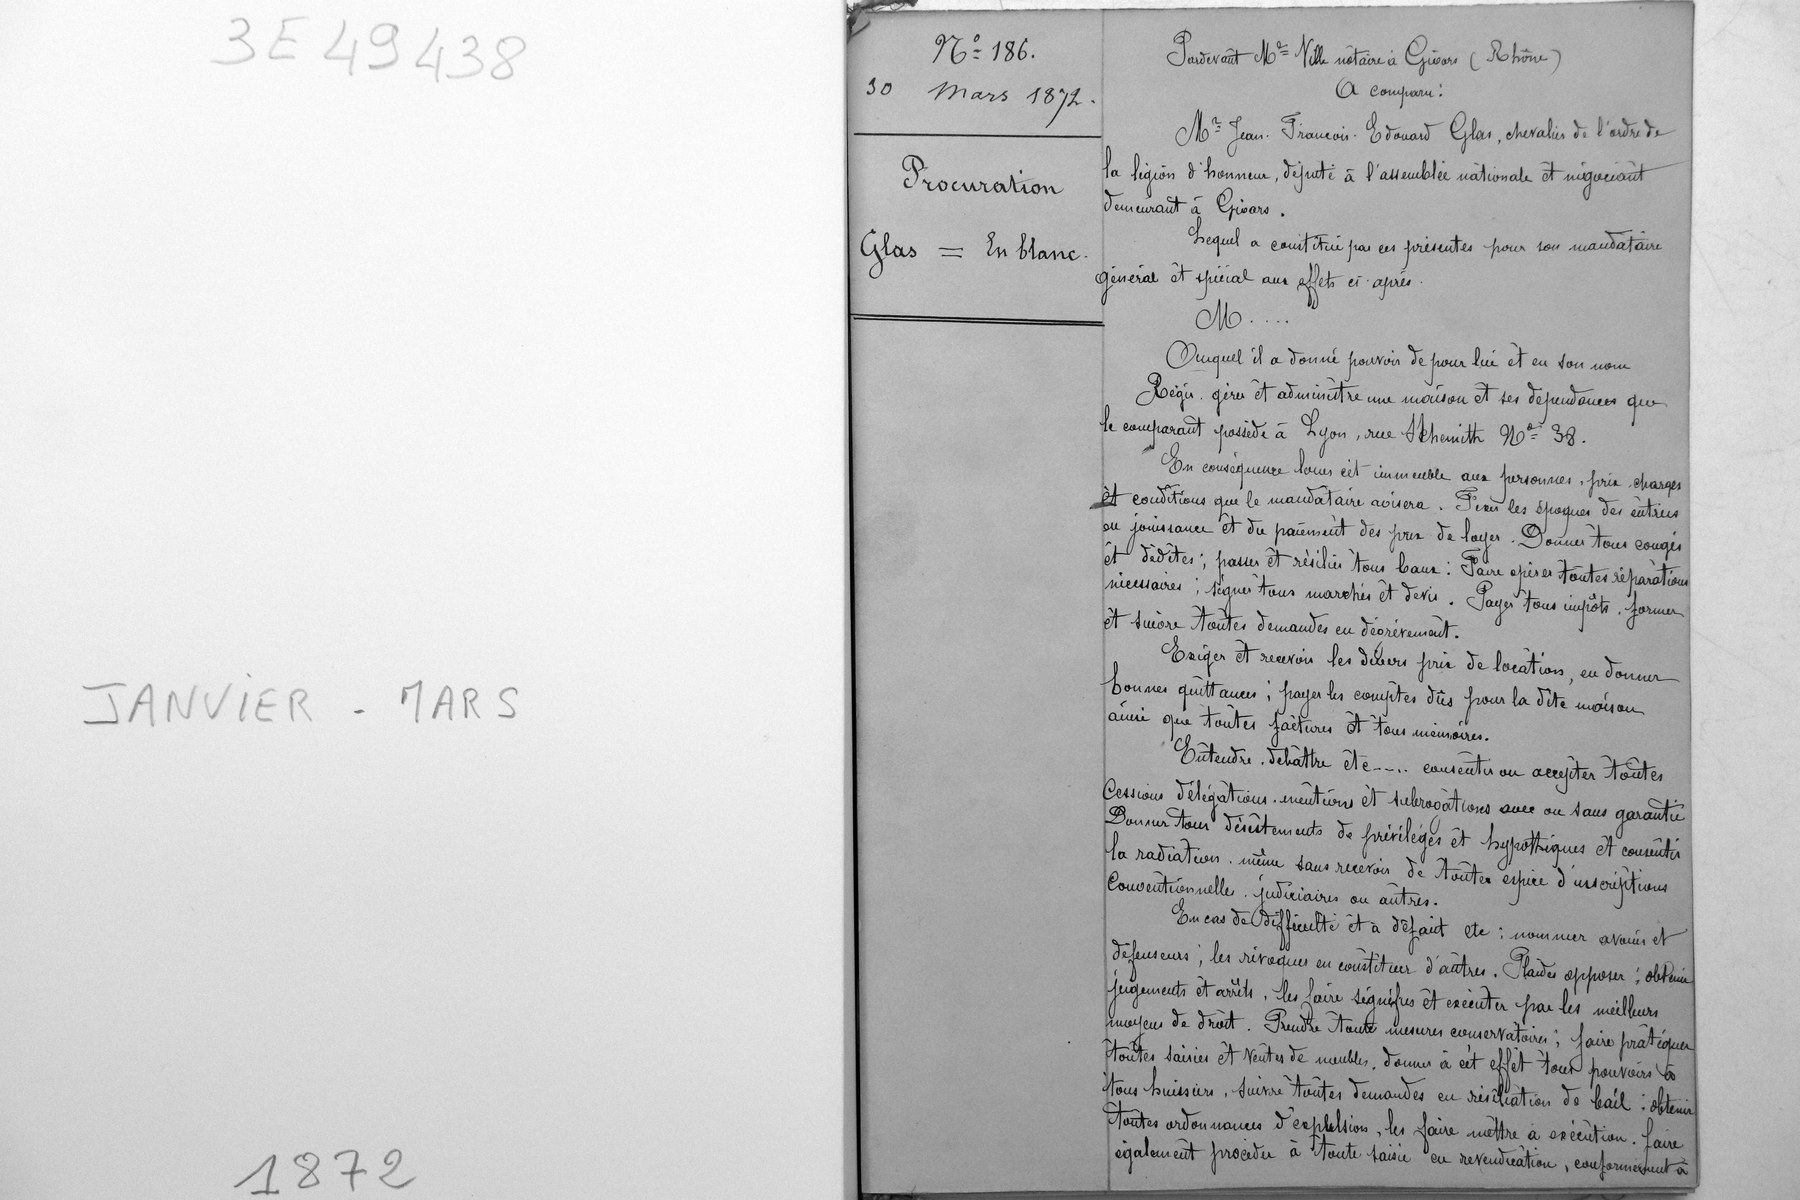 3E 49 438
JANVIER - MARS
1872
N° 186.
30 Mars 1872.
Procuration
Glas = En blanc.
Pardevant Me Ville notaire à Givors (Rhône)
A comparu :
Mr Jean. François. Edouard Glas, chevalier de l'ordre de
la légion d'honneur, député à l'assemblée nationale et négociant
demeurant à Givors.
Lequel a constitué par ces présentes pour son mandataire
général et spécial aux effets ci-après.
M. ...
Auquel il a donné pouvoir de pour lui et en son nom
Régir. gérer et administre une maison et ses dépendances que
le comparant possède à Lyon, rue N° 38.
En conséquence louer cet immeuble aux personnes, prix charges
et conditions que le mandataire avisera. Fixer les époques des entrées
en jouissance et du paiement des prix de loyer. Donner tous congés
et dédites ; passer et résilier tous baux : Faire opérer toutes réparations
nécessaires ; signer tous marchés et devis. Payer tous impôts. former
et suivre toutes demandes en dégrèvement.
Exiger et recevoir les divers prix de location, en donner
bonnes quittances ; payer les comptes dûs pour la dite maison
ainsi que toutes factures et tous mémoires.
Entendre. débattre etc---.. consentir ou accepter toutes
Cessions délégations. mentions et subrogations avec ou sans garantie
Donner tous désistements de privilèges et hypothèques et consentir
la radiation. même sans recevoir de toutes espèce d'inscriptions
Conventionnelle. judiciaires ou autres.
En cas de difficulté et à défaut etc : nommer avoués et
défenseurs ; les révoquer en constituer d'autres. Plaider opposer ; obtenir
jugements et arrêts, les faire signifier et exécuter par les meilleurs
moyens de droit. Prendre toute mesures conservatoires ; faire pratiquer
toutes saisies et ventes de meubles. donner à cet effet tous pouvoirs à
tous huissiers, suivre toutes demandes en résiliation de bail : obtenir
toutes ordonnances d'expulsion, les faire mettre à exécution. faire
également procéder à toute saisie en revendication, conformément à